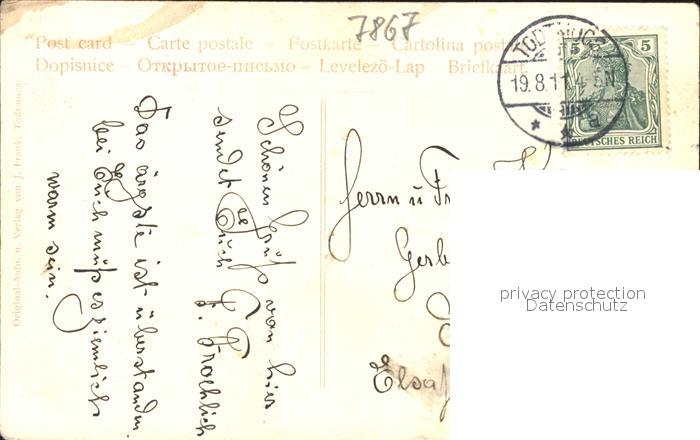 7867
Post card – Carte postale – Postkarte – Cartolina post
Dopisnice – Открытое-письмо – Levelező-Lap – Briefkaart
TODTMOOS
19.8.11.4-5N
a
5 5
DEUTSCHES REICH
Original-Aufn. u. Verlag von J. Frank, Todtmoos.
Schönen Gruß von hier
sendet Euch F. Froehlich
Das ärgste ist überstanden
bei Euch muß es ziemlich
warm sein.
Herrn u Fr
Gerb
Elsaß
privacy protection
Datenschutz